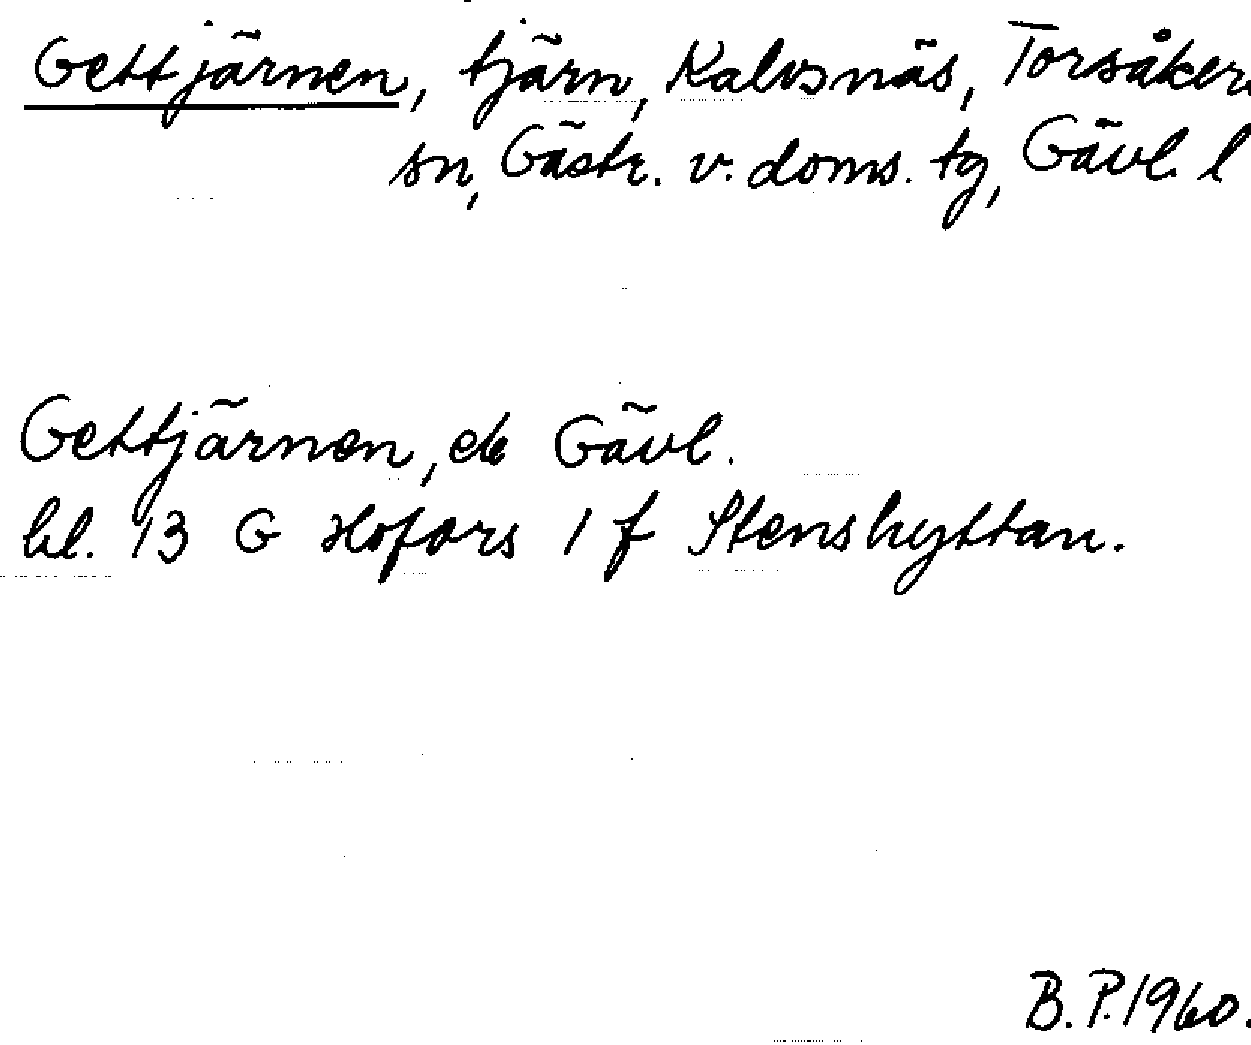 Gettjärnen, tjärn, Kalvsnäs, Torsåkers
sn, Gästr. v. doms. tg, Gävl. l
Gettjärnen, ek Gävl.
bl. 13 G Hofors 1 f Stenshyttan.
B.P. 1960.